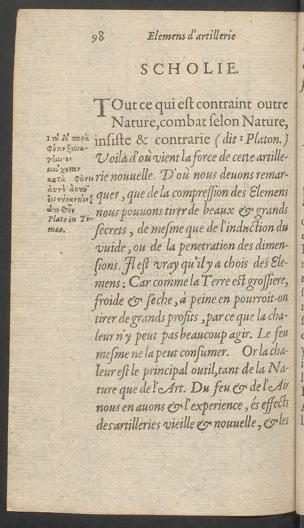 98 Elemens d'artillerie
SCHOLIE.
TOut ce qui est contraint outre
Nature, combat selon Nature,
insiste & contrarie ( dit 1 Platon. )
Voilà d'où vient la force de cette artille-
rie nouuelle. D'où nous deuons remar-
quer, que de la compression des Elemens
nous pouuons tirer de beaux & grands
secrets, de mesme que de l'induction du
vuide, ou de la penetration des dimen-
sions. Il est vray qu'il y a chois des Ele-
mens : Car comme la Terre est grossiere,
froide & seche, à peine en pourroit-on
tirer de grands profits, par ce que la cha-
leur n'y peut pas beaucoup agir. Le feu
mesme ne la peut consumer. Or la cha-
leur est le principal outil, tant de la Na-
ture que de l'Art. Du feu & de l'Air
nous en auons & l'experience, és effects
des artilleries vieille & nouuelle, & les
1 τὸ δὲ παρὰ
κατὰ φύσιν
Plato in Ti-
mæo.